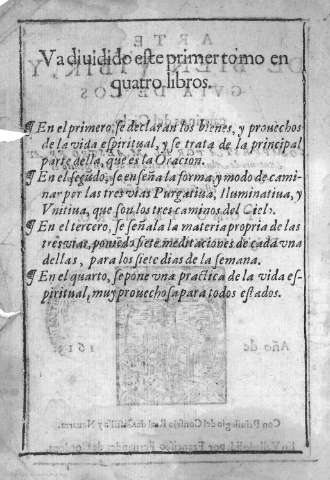 Va diuidido este primer tomo en
quatro libros.
¶ En el primero, se declaran los bienes, y prouechos
de la vida espiritual, y se trata de la principal
parte della, que es la Oracion.
¶ En el segũdo, se enseña la forma, y modo de cami-
nar por las tres vias Purgatiua, Iluminatiua, y
Vnitiua, que son los tres caminos del Cielo.
¶ En el tercero, se señala la materia propria de las
tres vias, poniẽdo siete meditaciones de cada vna
dellas, para los siete dias de la semana.
¶ En el quarto, se pone vna practica de la vida es-
piritual, muy prouechosa para todos estados.